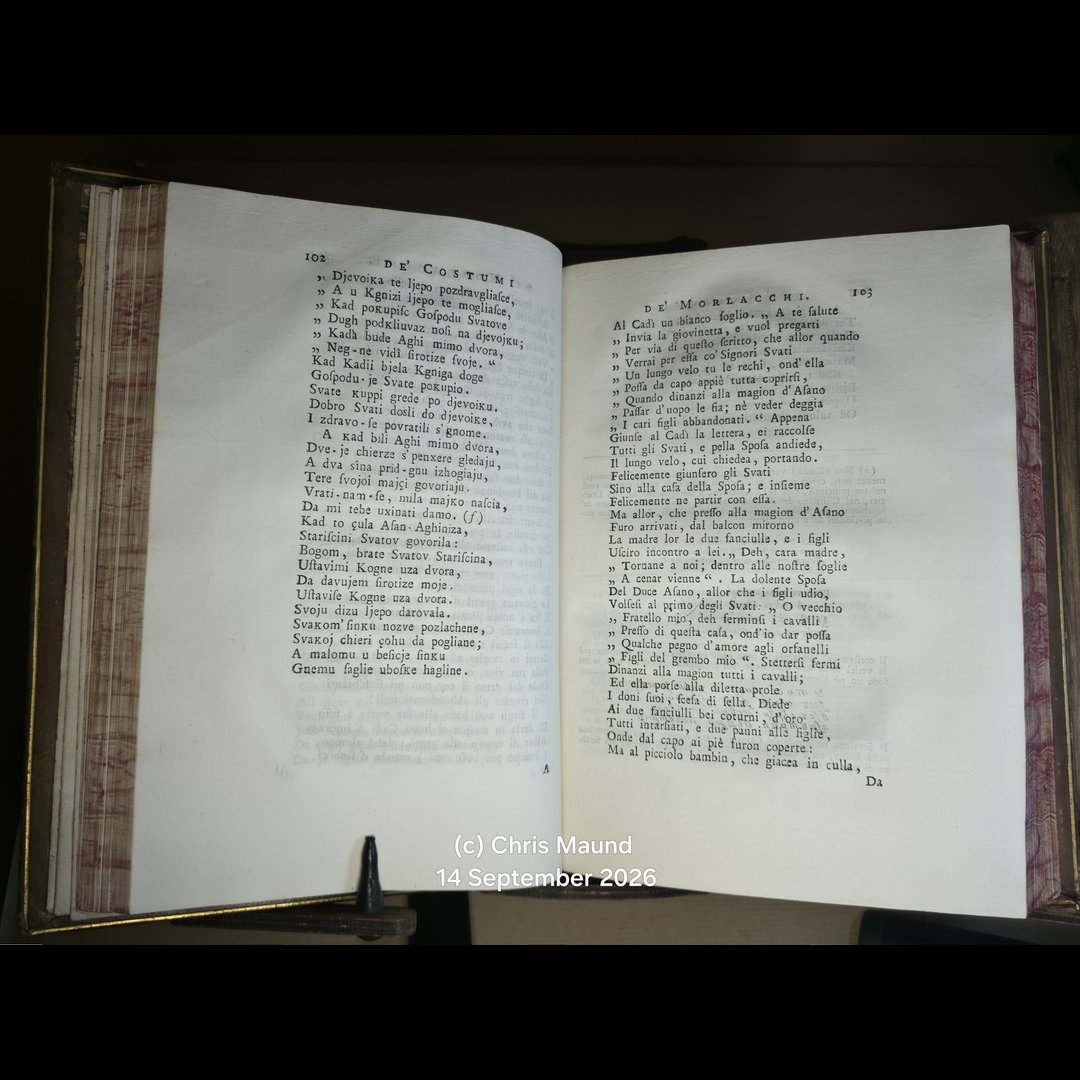 102 DE' COSTUMI
„ Djevoiка te ljepo pozdravgliaſce,
„ A u Kgnizi ljepo te mogliaſce,
„ Kad poкupiſc Goſpodu Svatove
„ Dugh podкliuvaz noſi na djevojкu;
„ Kadà bude Aghi mimo dvora,
„ Neg-ne vidì ſirotize ſvoje. “
Kad Kadii bjela Kgniga doge
Goſpodu-je Svate poкupio.
Svate кuppi grede po djevoiкu.
Dobro Svati dosli do djevoiкe,
I zdravo-ſe povratili s'gnome.
A кad bili Aghi mimo dvora,
Dve-je chierze s'penxere gledaju,
A dva sìna prid-gnu izhogiaju,
Tere ſvojoi majçi govoriaju.
Vrati-nam-ſe, mila majкo naſcia,
Da mi tebe uxinati damo. (f)
Kad to çula Aſan-Aghiniza,
Stariſcini Svatov govorila:
Bogom, brate Svatov Stariſcina,
Uſtavimi Kogne uza dvora,
Da davujem ſirotize moje.
Uſtaviſe Kogne uza dvora.
Svoju dizu ljepo darovala.
Svaкom' ſinкu nozve pozlachene,
Svaкoj chieri çohu da pogliane;
A malomu u beſicje ſinкu
Gnemu ſaglie uboſкe hagline.
A
DE' MORLACCHI. 103
Al Cadì un bianco foglio. „ A te ſalute
„ Invia la giovinetta, e vuol pregarti
„ Per via di queſto ſcritto, che allor quando
„ Verrai per eſſa co' Signori Svati
„ Un lungo velo tu le rechi, ond'ella
„ Poſſa da capo appiè tutta coprirſi,
„ Quando dinanzi alla magion d'Aſano
„ Paſſar d'uopo le ſia; nè veder deggia
„ I cari figli abbandonati. “ Appena
Giunſe al Cadì la lettera, ei raccolſe
Tutti gli Svati, e pella Spoſa andiede,
Il lungo velo, cui chiedea, portando.
Felicemente giunſero gli Svati
Sino alla caſa della Spoſa; e inſieme
Felicemente ne partir con eſſa.
Ma allor, che preſſo alla magion d'Aſano
Furo arrivati, dal balcon mirorno
La madre lor le due fanciulle, e i figli
Uſciro incontro a lei. „ Deh, cara madre,
„ Tornane a noi; dentro alle noſtre ſoglie
„ A cenar vienne “. La dolente Spoſa
Del Duce Aſano, allor che i figli udio,
Volſeſi al primo degli Svati: „ O vecchio
„ Fratello mio, deh ferminſi i cavalli
„ Preſſo di queſta caſa, ond'io dar poſſa
„ Qualche pegno d'amore agli orfanelli
„ Figli del grembo mio “. Stetterſi fermi
Dinanzi alla magion tutti i cavalli;
Ed ella porſe alla diletta prole
I doni ſuoi, ſceſa di ſella. Diede
Ai due fanciulli bei coturni, d'oro
Tutti intarſiati, e due panni alle figlie,
Onde dal capo ai piè furon coperte:
Ma al picciolo bambin, che giacea in culla,
Da
(c) Chris Maund
14 September 2026